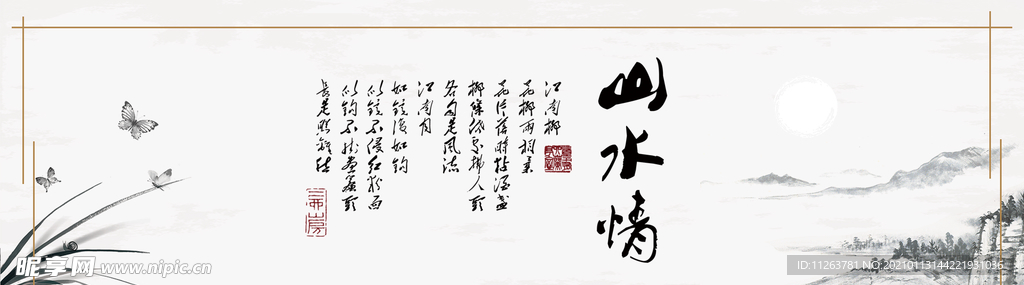 山水情
江南柳
花柳两相柔
花片落时粘酒盏
柳条低处拂人头
各自是风流
江南月
如镜复如钩
似镜不侵红粉面
似钩不挂画帘头
长是照离愁
昵享网 www.nipic.cn
ID:11263781 NO:20210113144221931036